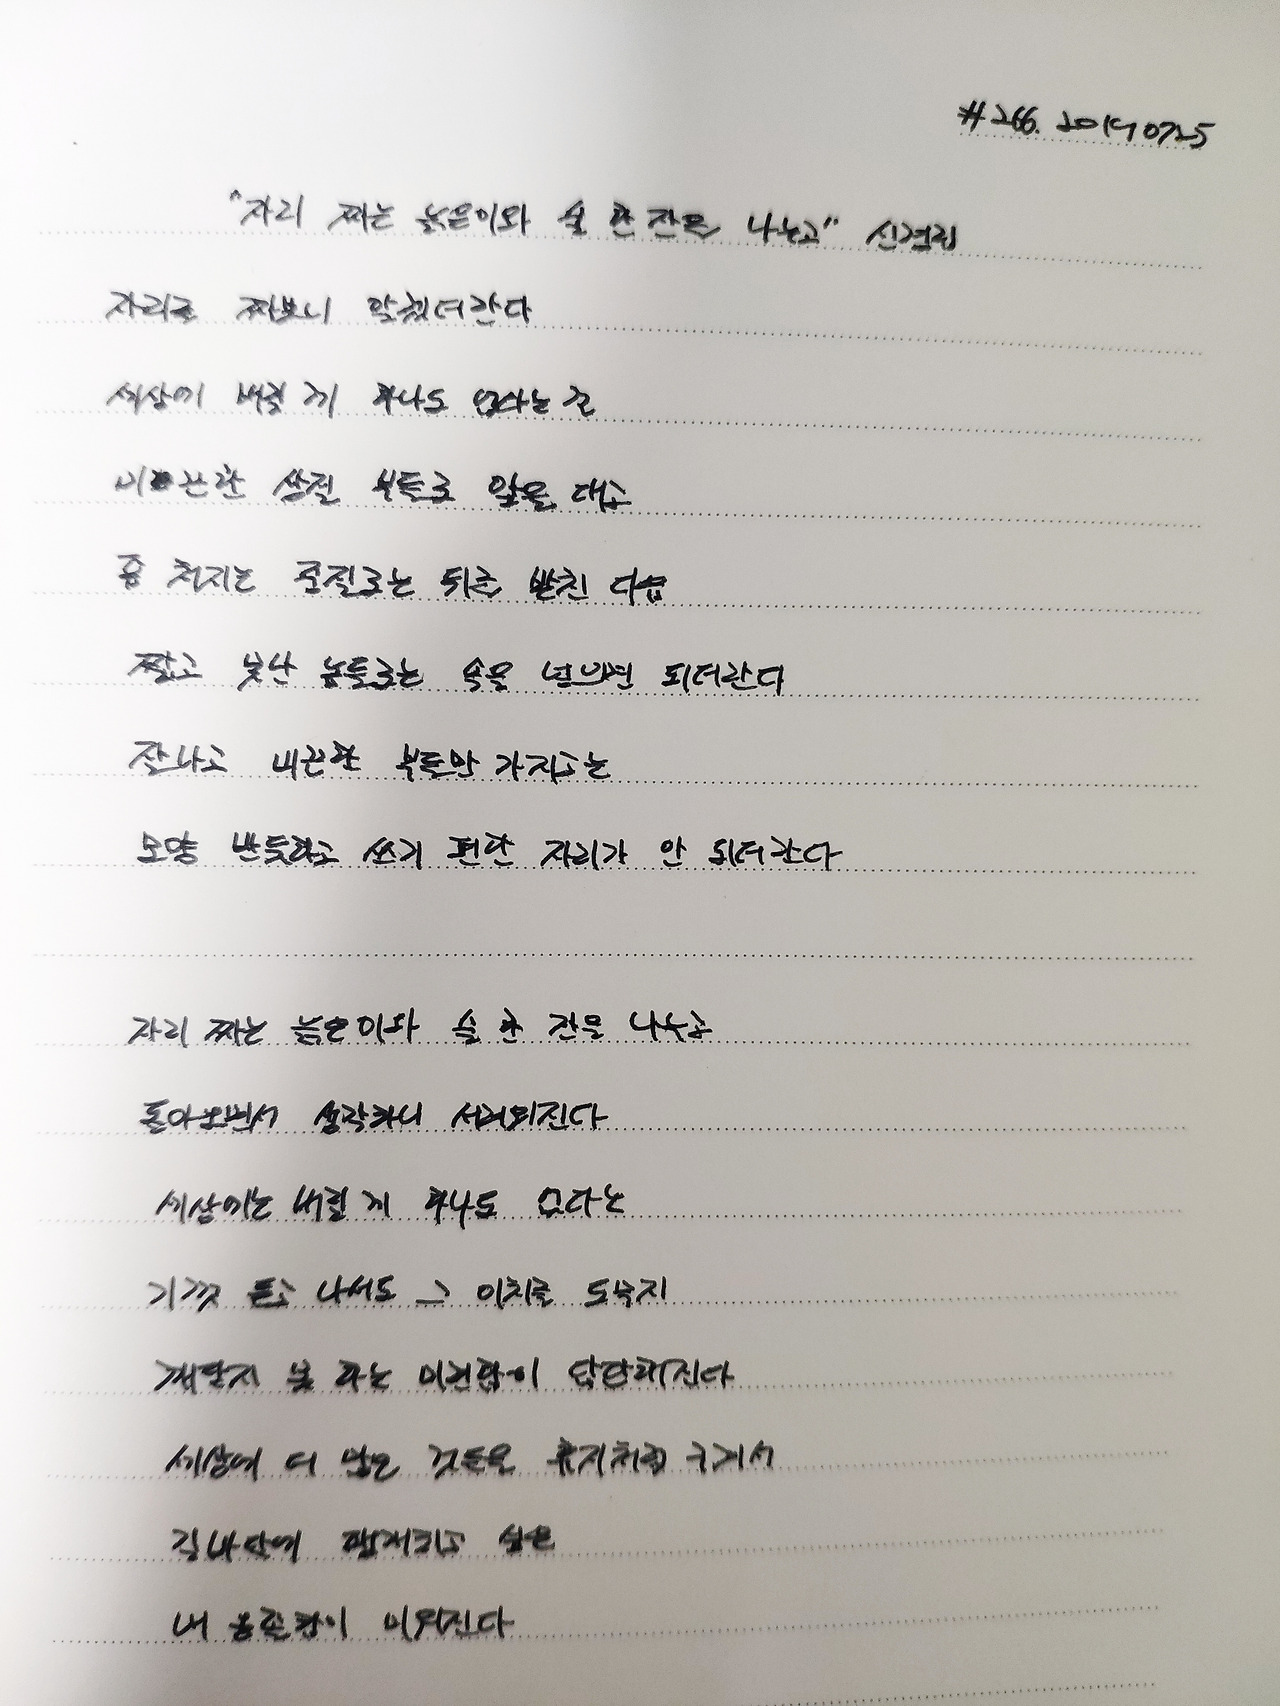 #266. 20190725
"자리 짜는 늙은이와 술 한 잔을 나누고" 신경림
자리를 짜보니 알겠더란다
세상에 버릴 게 하나도 없다는 걸
미끈한 상질 부들로 앞을 대고
좀 처지는 중질로는 뒤를 받친 다음
짧고 못난 놈들로는 속을 넣으면 되더란다
잘나고 미끈한 부들만 가지고는
모양 반듯하고 쓰기 편한 자리가 안 되더란다
자리 짜는 늙은이와 술 한 잔을 나누고
돌아오면서 생각하니 서러워진다
세상에는 버릴 게 하나도 없다는
기껏 듣고 나서도 그 이치를 도무지
깨닫지 못 하는 미련함이 답답해진다
세상에 더 많은 것들을 휴지처럼 구겨서
길바닥에 팽개치고 싶은
내 옹졸함이 미워진다